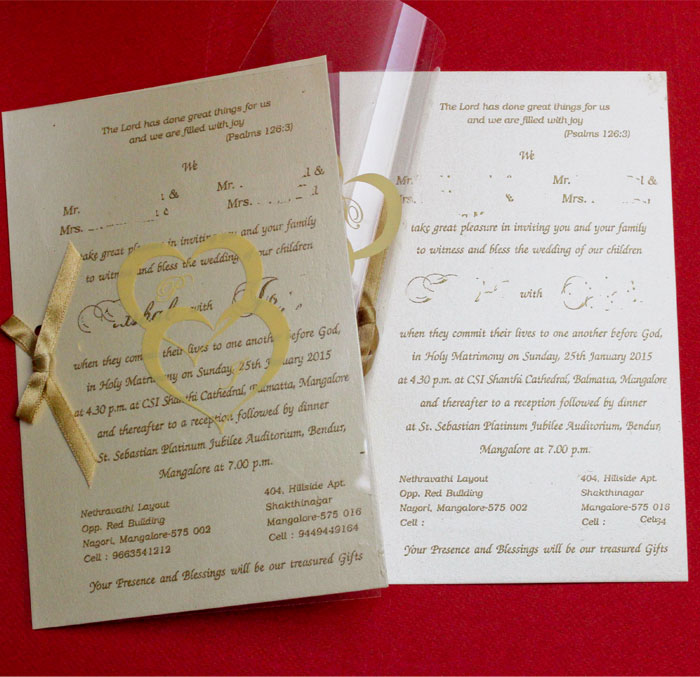 The Lord has done great things for us
and we are filled with joy
(Psalms 126:3)
We
Mr. &
Mr. &
Mrs.
Mrs.
take great pleasure in inviting you and your family
to witness and bless the wedding of our children
with
when they commit their lives to one another before God,
in Holy Matrimony on Sunday, 25th January 2015
at 4.30 p.m. at CSI Shanthi Cathedral, Balmatta, Mangalore
and thereafter to a reception followed by dinner
at St. Sebastian Platinum Jubilee Auditorium, Bendur,
Mangalore at 7.00 p.m.
Nethravathi Layout
Opp. Red Building
Nagori, Mangalore-575 002
Cell : 9663541212
404, Hillside Apt.
Shakthinagar
Mangalore-575 016
Cell : 9449449164
Your Presence and Blessings will be our treasured Gifts
The Lord has done great things for us
and we are filled with joy
(Psalms 126:3)
We
Mr.
Mr. &
Mrs.
Mrs.
take great pleasure in inviting you and your family
to witness and bless the wedding of our children
with
when they commit their lives to one another before God,
in Holy Matrimony on Sunday, 25th January 2015
at 4.30 p.m. at CSI Shanthi Cathedral, Balmatta, Mangalore
and thereafter to a reception followed by dinner
at St. Sebastian Platinum Jubilee Auditorium, Bendur,
Mangalore at 7.00 p.m.
Nethravathi Layout
Opp. Red Building
Nagori, Mangalore-575 002
Cell :
404, Hillside Apt.
Shakthinagar
Mangalore-575 016
Your Presence and Blessings will be our treasured Gifts